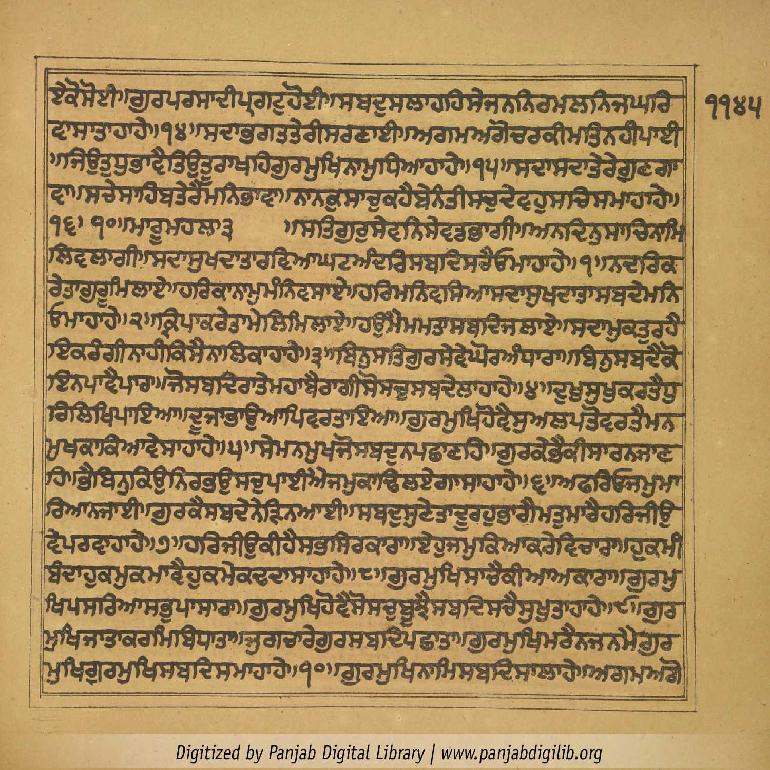 ਏਕੋਸੋਈ॥ਗੁਰਪਰਸਾਦੀਪ੍ਰਗਟੁਹੋਈ॥ਸਬਦੁਸਲਾਹਹਿਸੇਜਨਨਿਰਮਲਨਿਜਘਰਿ
੧੧੪੫
ਵਾਸਾਤਾਹਾਹੇ॥੧੪॥ਸਦਾਭਗਤਤੇਰੀਸਰਣਾਈ॥ਅਗਮਅਗੋਚਰਕੀਮਤਿਨਹੀਪਾਈ
॥ਜਿਉਤੁਧੁਭਾਵੈਤਿਉਤੂਰਾਖਹਿਗੁਰਮੁਖਿਨਾਮੁਧਿਆਹਾਹੇ॥੧੫॥ਸਦਾਸਦਾਤੇਰੇਗੁਣਗਾ
ਵਾ॥ਸਚੇਸਾਹਿਬਤੇਰੈਮਨਿਭਾਵਾ॥ਨਾਨਕੁਸਾਚੁਕਹੈਬੇਨੰਤੀਸਚੁਦੇਵਹੁਸਚਿਸਮਾਹਾਹੇ॥
੧੬॥੧॥੧੦॥ਮਾਰੂਮਹਲਾ੩ ॥ਸਤਿਗੁਰੁਸੇਵਨਿਸੇਵਡਭਾਗੀ॥ਅਨਦਿਨੁਸਾਚਿਨਾਮਿ
ਲਿਵਲਾਗੀ॥ਸਦਾਸੁਖਦਾਤਾਰਵਿਆਘਟਅੰਦਰਿਸਬਦਿਸਚੈਓਮਾਹਾਹੇ॥੧॥ਨਦਰਿਕ
ਰੇਤਾਗੁਰੂਮਿਲਾਏ॥ਹਰਿਕਾਨਾਮੁਮੰਨਿਵਸਾਏ॥ਹਰਿਮਨਿਵਸਿਆਸਦਾਸੁਖਦਾਤਾਸਬਦੇਮਨਿ
ਓਮਾਹਾਹੇ॥੨॥ਕ੍ਰਿਪਾਕਰੇਤਾਮੇਲਿਮਿਲਾਏ॥ਹਉਮੈਮਮਤਾਸਬਦਿਜਲਾਏ॥ਸਦਾਮੁਕਤੁਰਹੈ
ਇਕਰੰਗੀਨਾਹੀਕਿਸੈਨਾਲਿਕਾਹਾਹੇ॥੩॥ਬਿਨੁਸਤਿਗੁਰਸੇਵੇਘੋਰਅੰਧਾਰਾ॥ਬਿਨੁਸਬਦੈਕੋ
ਇਨਪਾਵੈਪਾਰਾ॥ਜੋਸਬਦਿਰਾਤੇਮਹਾਬੈਰਾਗੀਸੋਸਚੁਸਬਦੇਲਾਹਾਹੇ॥੪॥ਦੁਖੁਸੁਖੁਕਰਤੈਧੁ
ਰਿਲਿਖਿਪਾਇਆ॥ਦੂਜਾਭਾਉਆਪਿਵਰਤਾਇਆ॥ਗੁਰਮੁਖਿਹੋਵੈਸੁਅਲਪਤੋਵਰਤੈਮਨ
ਮੁਖਕਾਕਿਆਵੇਸਾਹਾਹੇ॥੫॥ਸੇਮਨਮੁਖਜੋਸਬਦੁਨਪਛਾਣਹਿ॥ਗੁਰਕੇਭੈਕੀਸਾਰਨਜਾਣ
ਹਿ॥ਭੈਬਿਨੁਕਿਉਨਿਰਭਉਸਚੁਪਾਈਐਜਮੁਕਾਢਿਲਏਗਾਸਾਹਾਹੇ॥੬॥ਅਫਰਿਓਜਮੁਮਾ
ਰਿਆਨਜਾਈ॥ਗੁਰਕੈਸਬਦੇਨੇੜਿਨਆਈ॥ਸਬਦੁਸੁਣੇਤਾਦੂਰਹੁਭਾਗੈਮਤੁਮਾਰੇਹਰਿਜੀਉ
ਵੇਪਰਵਾਹਾਹੇ॥੭॥ਹਰਿਜੀਉਕੀਹੈਸਭਸਿਰਕਾਰਾ॥ਏਹੁਜਮੁਕਿਆਕਰੇਵਿਚਾਰਾ॥ਹੁਕਮੀ
ਬੰਦਾਹੁਕਮੁਕਮਾਵੈਹੁਕਮੇਕਢਦਾਸਾਹਾਹੇ॥੮॥ਗੁਰਮੁਖਿਸਾਚੈਕੀਆਅਕਾਰਾ॥ਗੁਰਮੁ
ਖਿਪਸਰਿਆਸਭੁਪਾਸਾਰਾ॥ਗੁਰਮੁਖਿਹੋਵੈਸੋਸਚੁਬੂਝੈਸਬਦਿਸਚੈਸੁਖੁਤਾਹਾਹੇ॥੯॥ਗੁਰ
ਮੁਖਿਜਾਤਾਕਰਮਿਬਿਧਾਤਾ॥ਜੁਗਚਾਰੇਗੁਰਸਬਦਿਪਛਾਤਾ॥ਗੁਰਮੁਖਿਮਰੈਨਜਨਮੈਗੁਰ
ਮੁਖਿਗੁਰਮੁਖਿਸਬਦਿਸਮਾਹਾਹੇ॥੧੦॥ਗੁਰਮੁਖਿਨਾਮਿਸਬਦਿਸਾਲਾਹੇ॥ਅਗਮਅਗੋ
Digitized by Panjab Digital Library | www.panjabdigilib.org